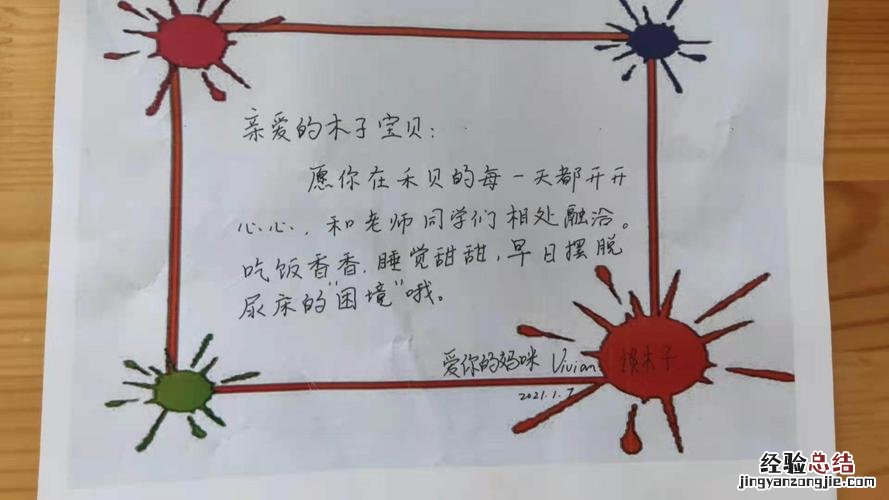 亲爱的木子宝贝：
愿你在禾贝的每一天都开开
心心，和老师同学们相处融洽。
吃饭香香，睡觉甜甜，早日摆脱
尿床的“困境”哦。
爱你的妈咪 Vivian 木子
2021.1.7
经验总结
jingyanzongjie.com